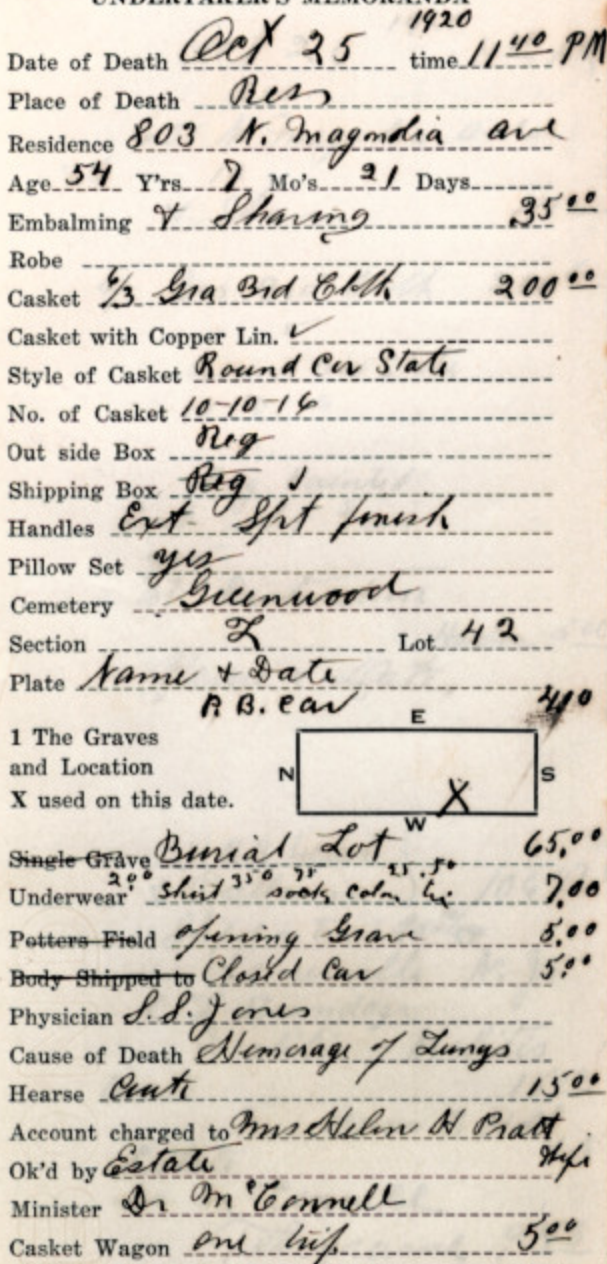 UNDERTAKER'S MEMORANDA
1920
Date of Death Oct 25 time 11 40 PM
Place of Death Res
Residence 803 N. Magnolia ave
Age 54 Y'rs 7 Mo's 21 Days
Embalming & Shaving 35 00
Robe
Casket 6/3 Gra Brd Cloth 200 00
Casket with Copper Lin. ✓
Style of Casket Round Cor State
No. of Casket 10-10-16
Out side Box Reg
Shipping Box Reg
Handles Ext Spt finish
Pillow Set yes
Cemetery Greenwood
Section Lot 42
Plate Name + Date
P. B. Car
E
1 The Graves
and Location N S
X used on this date. X
W
Single Grave Burial Lot 65.00
2 00 3 50 75 25 .50
Underwear shirt socks tie 7.00
Potters Field opening Grave 5.00
Body Shipped to Closed Car 5.00
Physician S. S. Jones
Cause of Death Hemorage of Lungs
Hearse Auto 15 00
Account charged to Mrs Helen H Pratt
Wife
Ok'd by Estate
Minister Dr McConnell
Casket Wagon one trip 5 00